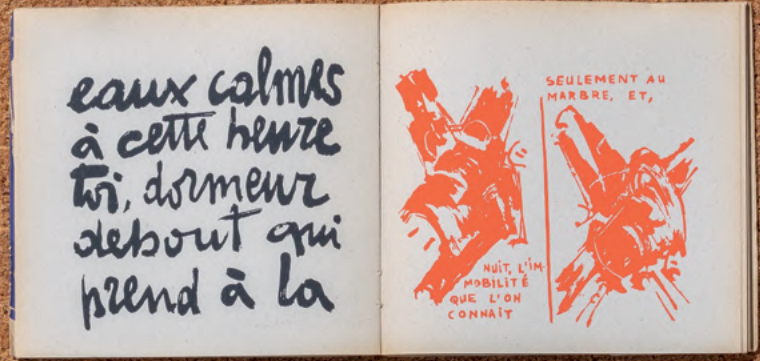 eaux calmes
à cette heure
toi, dormeur
debout qui
prend à la
NUIT, L'IM-
MOBILITÉ
QUE L'ON
CONNAIT
SEULEMENT AU
MARBRE, ET,